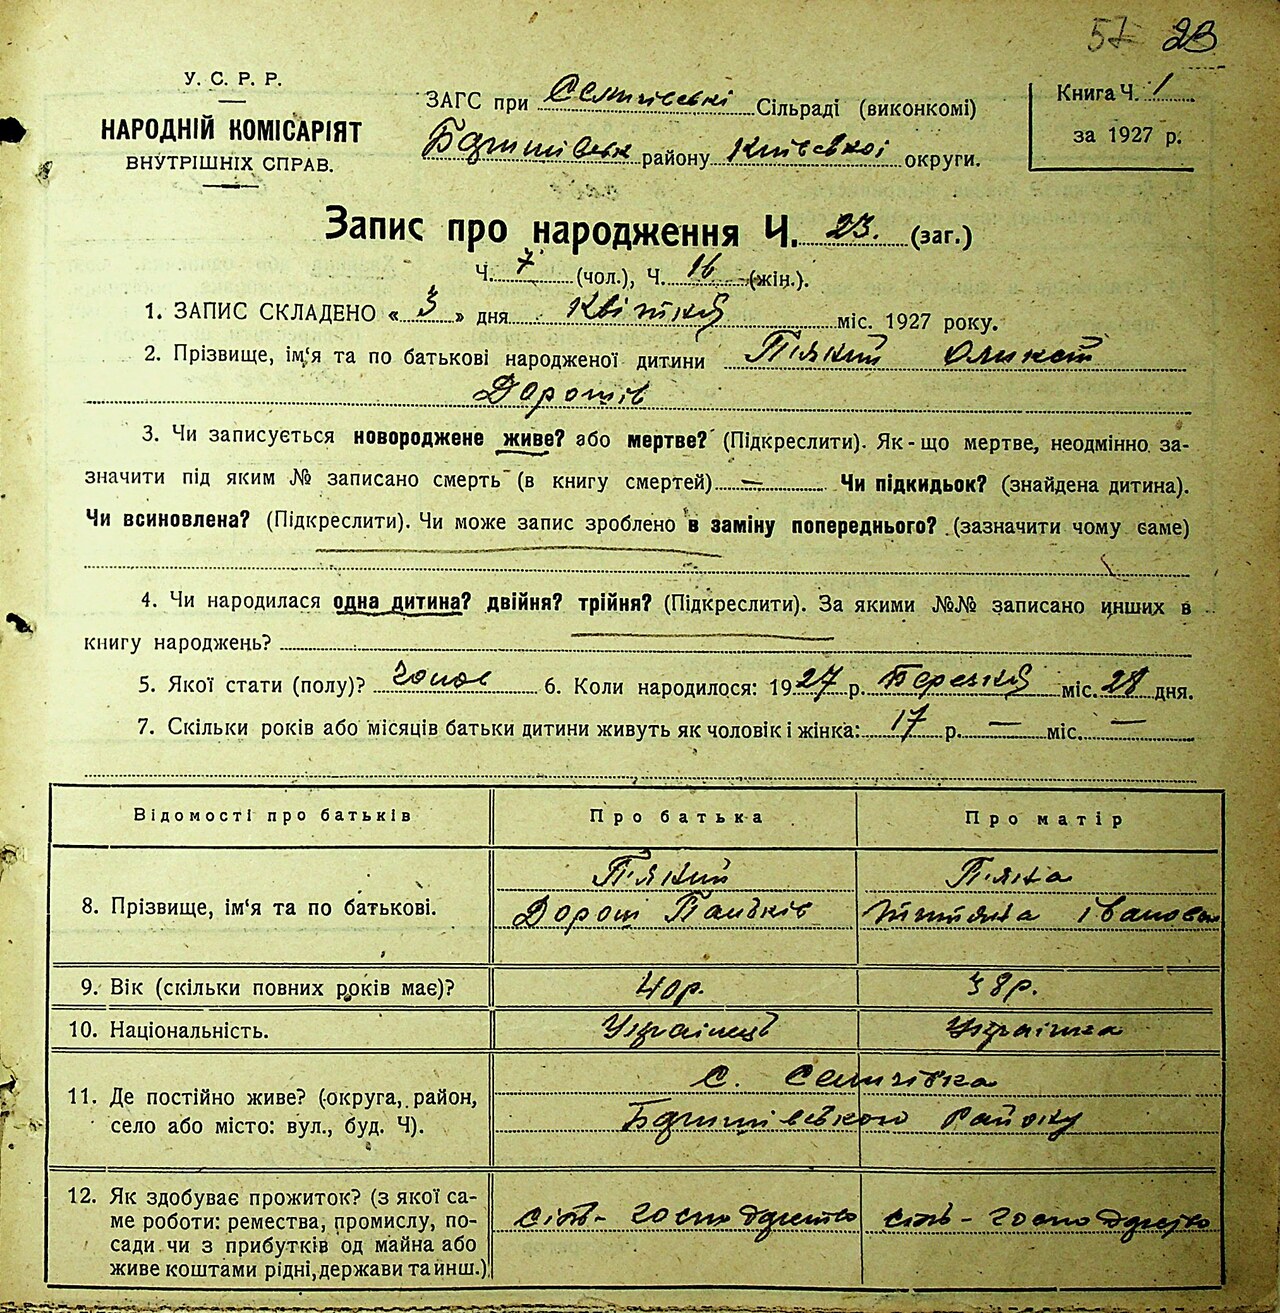 57 23
У. С. Р. Р.
НАРОДНІЙ КОМІСАРІЯТ
ВНУТРІШНІХ СПРАВ.
ЗАГС при Сільраді (виконкомі)
району Київської округи.
Книга Ч. 1
за 1927 р.
Запис про народження Ч. 23. (заг.)
Ч. 7 (чол.), Ч. 16 (жін.).
1. ЗАПИС СКЛАДЕНО « 3 » дня Квітня міс. 1927 року.
2. Прізвище, ім‘я та по батькові народженої дитини
3. Чи записується новороджене живе? або мертве? (Підкреслити). Як-що мертве, неодмінно за-
значити під яким № записано смерть (в книгу смертей) — Чи підкидьок? (знайдена дитина).
Чи всиновлена? (Підкреслити). Чи може запис зроблено в заміну попереднього? (зазначити чому саме)
4. Чи народилася одна дитина? двійня? трійня? (Підкреслити). За якими №№ записано инших в
книгу народжень?
5. Якої стати (полу)? 6. Коли народилося: 1927 р. Березня міс. 28 дня.
7. Скільки років або місяців батьки дитини живуть як чоловік і жінка: 17 р. — міс. —
Відомості про батьків Про батька Про матір
8. Прізвище, ім‘я та по батькові.
Дорош Івановна
9. Вік (скільки повних років має)? 40 р. 38 р.
10. Національність. Українець Українка
11. Де постійно живе? (округа, район,
село або місто: вул., буд. Ч).
с. Семигівка
району
12. Як здобуває прожиток? (з якої са-
ме роботи: ремества, промислу, по-
сади чи з прибутків од майна або
живе коштами рідні, держави та инш.)
сіль-господарство сіль-господарство